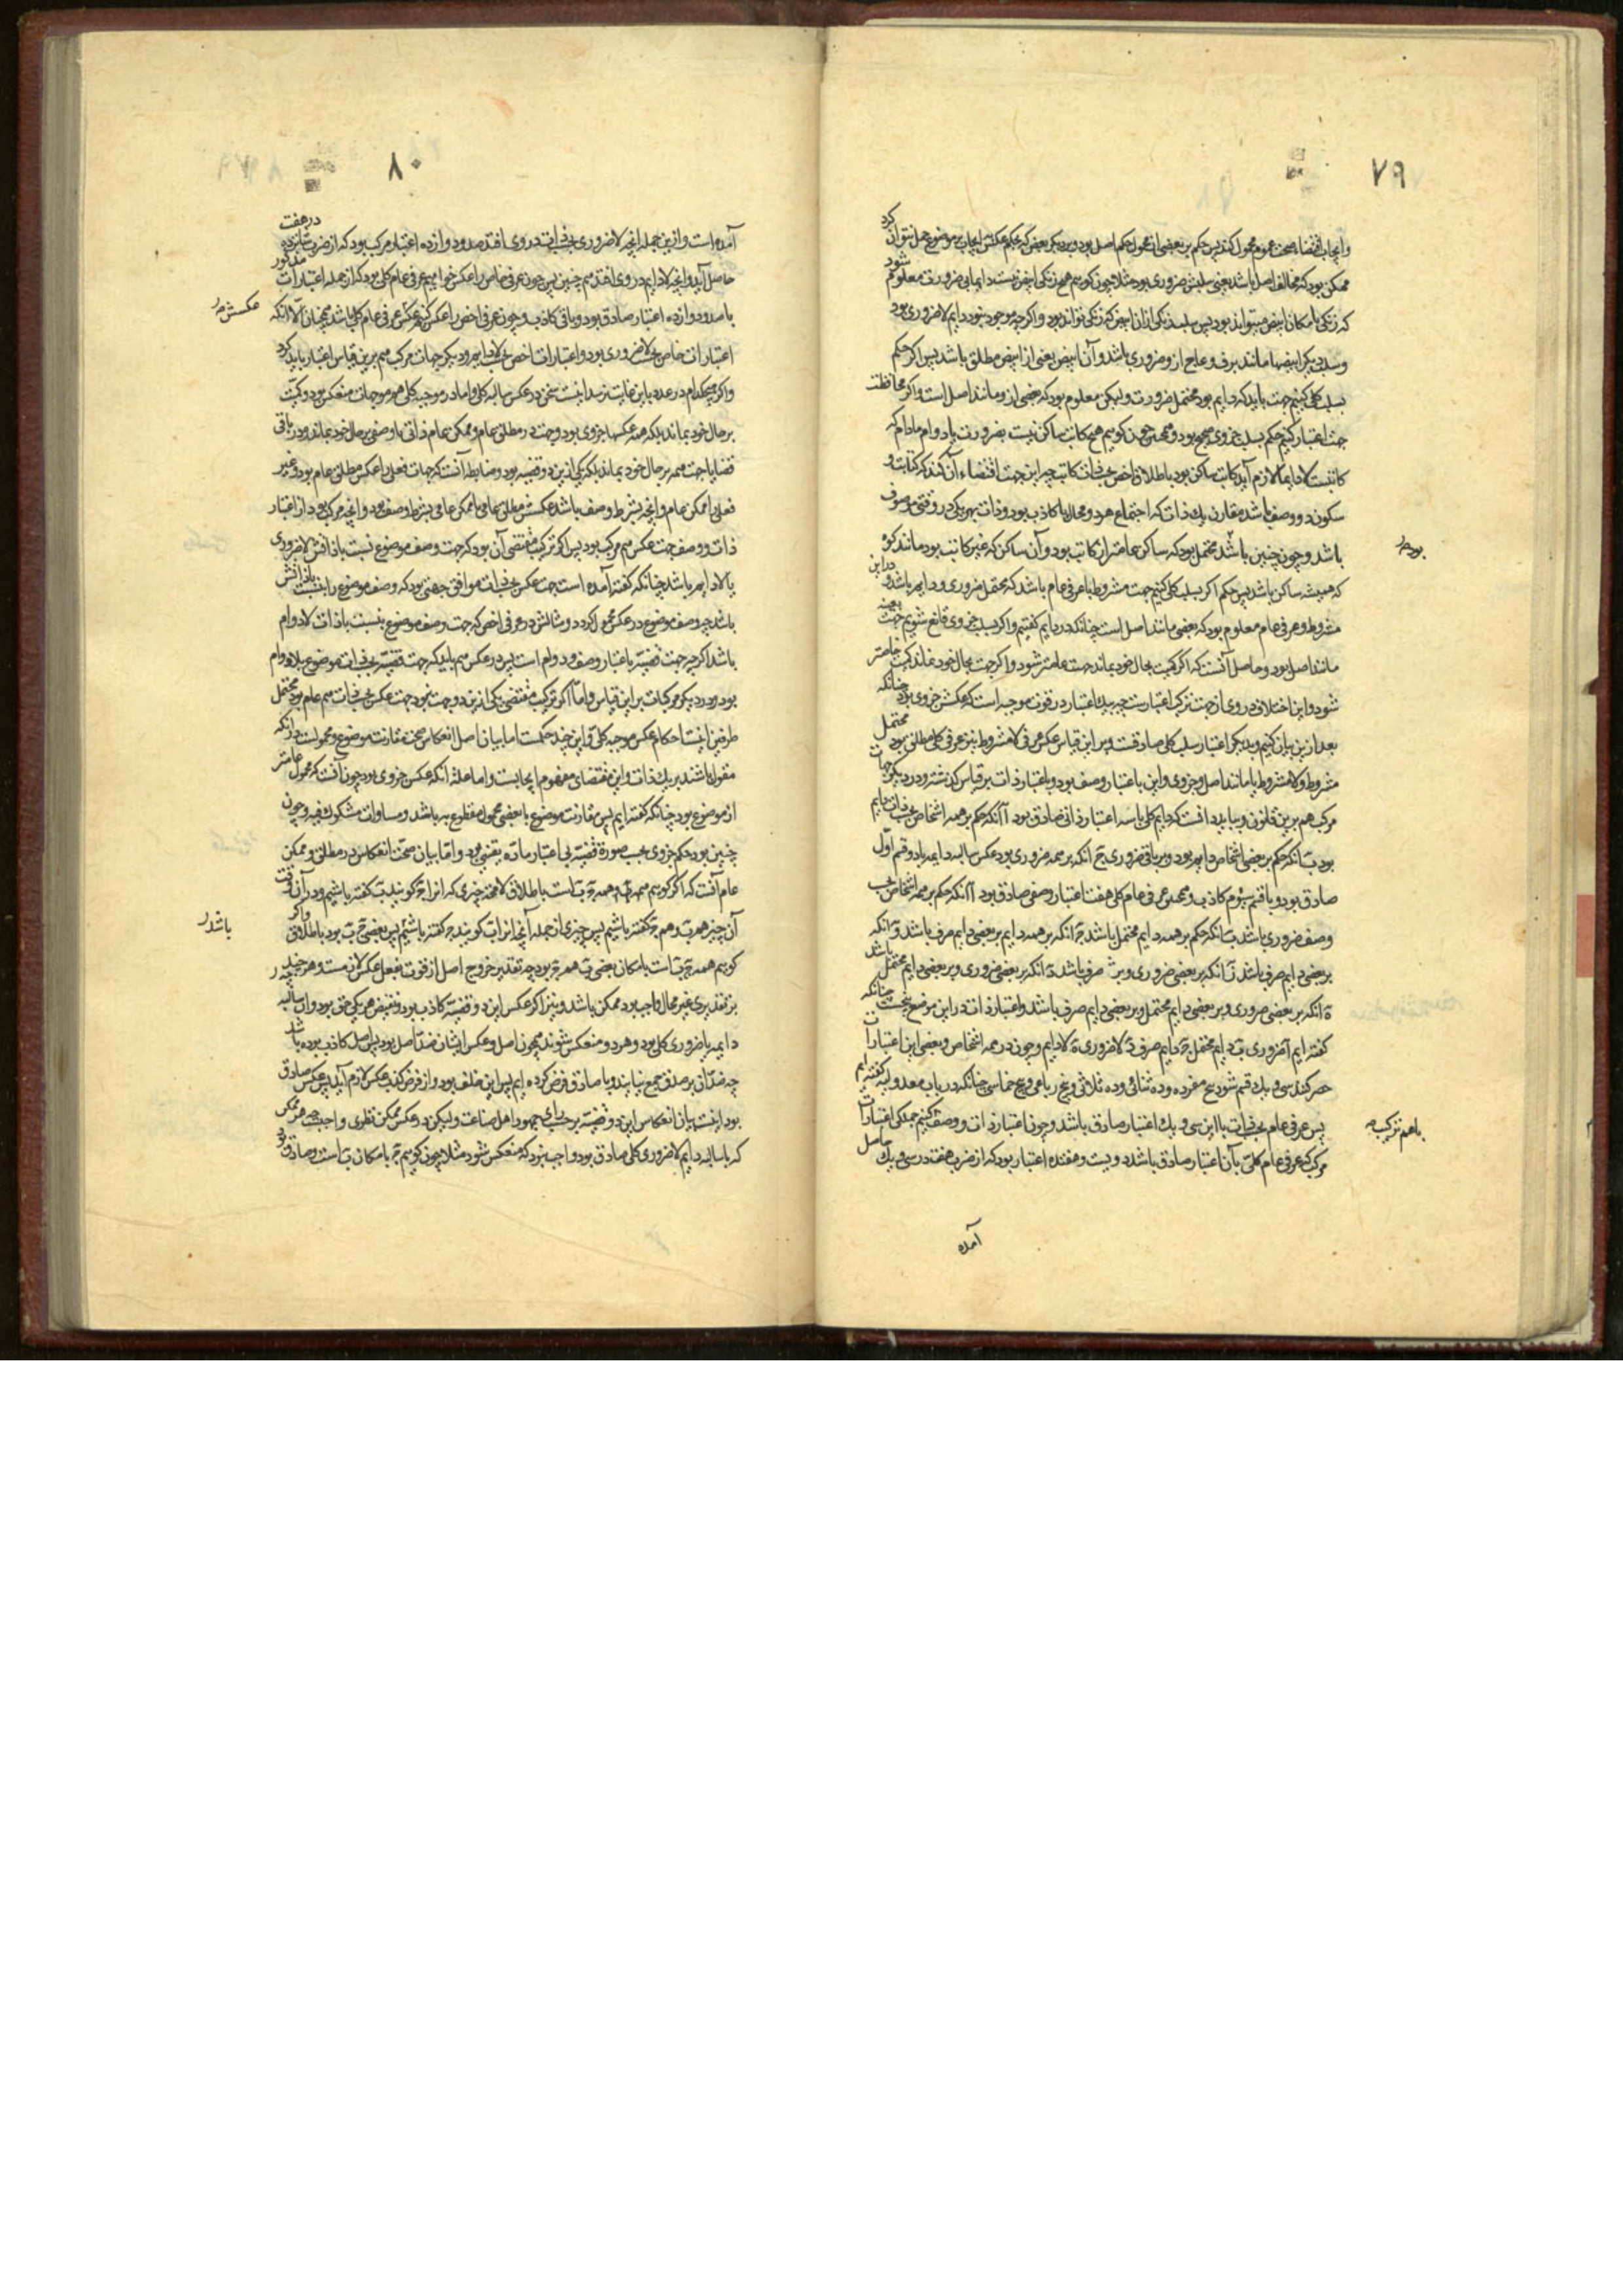 ۷۹
و ایجاب اقتضاء صحت عموم محمول کند پس حکم بر بعضی از محمول حکم اصل بود و بر دیگر بعض که بحکم عکس ایجاب بر موضوع حمل نتوان کرد
ممکن بود که مخالف اصل باشد یعنی سلبش ضروری بود مثلا چون گوییم هیچ زنگی ابیض نیست دایما بی ضرورت معلوم شود
که زنگی بامکان ابیض میتواند بود پس سلب زنگی از آن ابیض که زنگی تواند بود و اگر چه موجود نبود دایم لاضروری بود
و سلب دیگر ابیضها مانند برف و عاج ازو ضروری باشد و آن ابیض یعنی از ابیض مطلق باشد پس اگر حکم
بسلب کلی کنیم جهت باید که دایم بود محتمل ضرورت و لیکن معلوم بود که بعضی ازو مانند اصل است و اگر محافظت
جهت اعتبار کنیم حکم بسلب جزوی صحیح بود و همچنین چون گوییم هیچ کاتب ساکن نیست بضرورت یا دوام مادام که
کاتبست لادایما لازم آید کاتب ساکن بود باطلاق اخص بحسب ذات کاتب چه این جهت اقتضاء آن کند که کتابت و
سکون دو وصف باشد مقارن یک ذات که اجتماع هر دو محال یا کاذب بود و ذات بهر یکی در وقتی موصوف
باشد و چون چنین باشد محتمل بود که ساکن عامتر از کاتب بود و آن ساکن که غیر کاتب بود مانند کوه
بود
که همیشه ساکن باشد پس حکم اگر بسلب کلی کنیم جهت مشروط یا عرفی عام باشد که محتمل ضروری و دایم باشد و در این
مشروط و عرفی عام معلوم بود که بعضی مانند اصل است چنانکه در دایم گفتیم و اگر بسلب جزوی قانع شویم جهت بعینه
مانند اصل بود و حاصل آنست که اگر کمیت بحال خود بماند جهت عامتر شود و اگر جهت بحال خود بماند کمیت خاصتر
شود و این اختلاف در وی از جهت ترکب اعتبارست چه بیک اعتبار در قوت موجبه است که عکسش جزوی بود چنانکه
بعد ازین بیان کنیم و بدیگر اعتبار سلب کلی صادقست و بر این قیاس عکس عرفی لامشروط نیز عرفی کلی مطلق بود محتمل
مشروط و لامشروط یا مانند اصل و جزوی و این باعتبار وصف بود و باعتبار ذات بر قیاس گذشته و در دیگر جهات
مرکب هم برین قانون و بباید دانست که دایم کلی باسه اعتبار ذاتی صادق بود آ آنکه حکم بر همه اشخاص بحسب ذات دایم
بود ب آنکه حکم بر بعضی اشخاص دایم بود و بر باقی ضروری ج آنکه بر همه ضروری بود عکس سالبه دایمه با دو قسم اول
صادق بود و با قسم سیوم کاذب و همچنین عرفی عام کلی با هفت اعتبار وصفی صادق بود آ آنکه حکم بر همه اشخاص بحسب
وصف ضروری باشد ب آنکه حکم بر همه دایم محتمل باشد ج آنکه بر همه دایم بر بعضی دایم صرف باشد د آنکه
بر بعضی دایم صرف باشد آنکه بر بعضی ضروری و بر صرف باشد آنکه بر بعضی ضروری و بر بعضی دایم محتمل باشد
آنکه بر بعضی ضروری و بر بعضی دایم محتمل و بر بعضی دایم صرف باشد و اعتبار ذات در این موضع پنجست چنانکه
گفته ایم آ ضروری ب دایم محتمل ج دایم صرف د لاضروری ه لادایم و چون در همه اشخاص و بعضی این اعتبارات
حصر کنند سی و یک قسم شود پنج مفرده و ده ثنائی و ده ثلاثی و پنج رباعی و یک خماسی چنانکه در باب معدوله گفته ایم
پس عرفی عام بحسب ذات با این سی و یک اعتبار صادق باشد و چون اعتبار ذات و وصف کنیم جملگی اعتبارات
باهم ترکیب
مرکب که عرفی عام کلی بآن اعتبار صادق باشد دویست و هفده اعتبار بود که از ضرب هفت در سی و یک حاصل
آمده
۸۰
آمده است و ازین جمله آنچه لاضروری بحسب ذات در وی افتد صد و دوازده اعتبار مرکب بود که از ضرب شانزده در هفت
حاصل آید و آنچه لادایم در وی افتد هم چنین پس چون عرفی خاص را عکس خواهیم عرفی عام کلی بود که از جمله اعتبارات مذکور
با صد و دوازده اعتبار صادق بود و باقی کاذب و چون عرفی اخص را عکس کنیم عکس عرفی عام کلی باشد همچنان الا آنکه
عکسش
اعتبارات خاص بحسب لاضروری بود و اعتبارات اخص بحسب لادایم و دیگر جهات مرکب هم برین قیاس اعتبار باید کرد
و اگر هیچکدام در عدد باین غایت نرسد اینست سخن در عکس سالبه کلی و اما در موجبه کلی هر موجبات منعکس بود و کمیت
بر حال خود بماند بلکه همه عکسها جزوی بود و جهت در مطلق عام و ممکن عام ذاتی یا وصفی بر حال خود بماند و در باقی
قضایا جهت همه بر حال خود نماند بلکه یکی ازین دو قضیه بود و ضابطه آنست که جهات فعلی را عکس مطلق عام بود و غیر
فعلی را ممکن عام و آنچه بشرط وصف باشد عکسش مطلق عامی یا ممکن عامی بشرط وصف بود و آنچه مرکب بود از اعتبار
ذات و وصف جهت عکس هم مرکب بود پس اگر ترکیب مقتضی آن بود که جهت وصف موضوع نسبت با ذاتش لاضروری
یا لادایم باشد چنانکه گفته آمده است جهت عکس بحسب ذات موافق جهتی بود که وصف موضوع را نسبت با ذاتش
باشد چه وصف موضوع در عکس محمول گردد و مثالش در عرفی اخص که جهت وصف موضوع بنسبت با ذات لادوام
باشد اگر چه جهت قضیه باعتبار وصف دوام است پس در عکس هم باید که جهت قضیه بحسب ذات موضوع بلادوام
بود و در دیگر مرکبات بر این قیاس و اما اگر ترکیب مقتضی یکی ازین دو جهت نبود جهت عکس بحسب ذات هم عام بود محتمل
طرفین اینست احکام عکس موجبه کلی و این چند حکمست اما بیان اصل انعکاس صحت مقارنت موضوع و محمولست در آنکه
مقول باشند بر یک ذات و این مقتضای مفهوم ایجابست و اما علت آنکه عکس جزوی بود چون آنست که محمول عامتر
از موضوع بود چنانکه گفته ایم پس مقارنت موضوع با بعضی محمول مقطوع به باشد و مساوات مشکوک فیه و چون
چنین بود حکم جزوی بحسب صورة قضیه بی اعتبار ماده یقینی بود و اما بیان صحت انعکاس در مطلق و ممکن
عام آنست که اگر گوییم همه ج ب است باطلاق لامحاله چیزی که آنرا ج گویند ب گفته باشیم و در آن وقت
آن چیز هم ب و هم ج گفته باشیم پس چیزی از جمله آنچه آنرا ب گویند ج گفته باشیم پس بعضی ب ج بود باطلاق و اگر
باشد
گوییم همه ج ب است بامکان بعضی ب هم ج بود چه تقدیر خروج اصل از قوت بفعل عکس لازمست و هر چه
بر تقدیری غیر محال واجب بود ممکن باشد و نیز اگر عکس این دو قضیه کاذب بود نقیض هر یکی حق بود و آن سالبه
دایمه یا ضروری کلی بود و هر دو منعکس شوند همچون اصل و عکس ایشان ضد اصل بود پس اصل کاذب بوده باشد
چه ضدان بر صدق جمع نیایند و ما صادق فرض کرده ایم پس این خلف بود و از فرض کذب عکس لازم آید پس عکس صادق
بود اینست بیان انعکاس این دو قضیه بر حسب رای جمهور اهل صناعت و لیکن در عکس ممکن نظری واجبست چه هر ممکن
که با سالبه دایم لاضروری کلی صادق بود واجب نبود که منعکس شود مثلا چون گوییم ج بامکان ب است و صادق بود